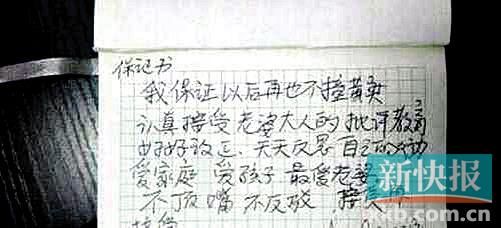 保记书
我保证以后再也不撞黄灯
认真接受老婆大人的批评教育
好好改正、天天反思自己的
爱家庭 爱孩子 最爱老婆
不顶嘴 不反驳 接受
接受
新快报
xkb.com.cn